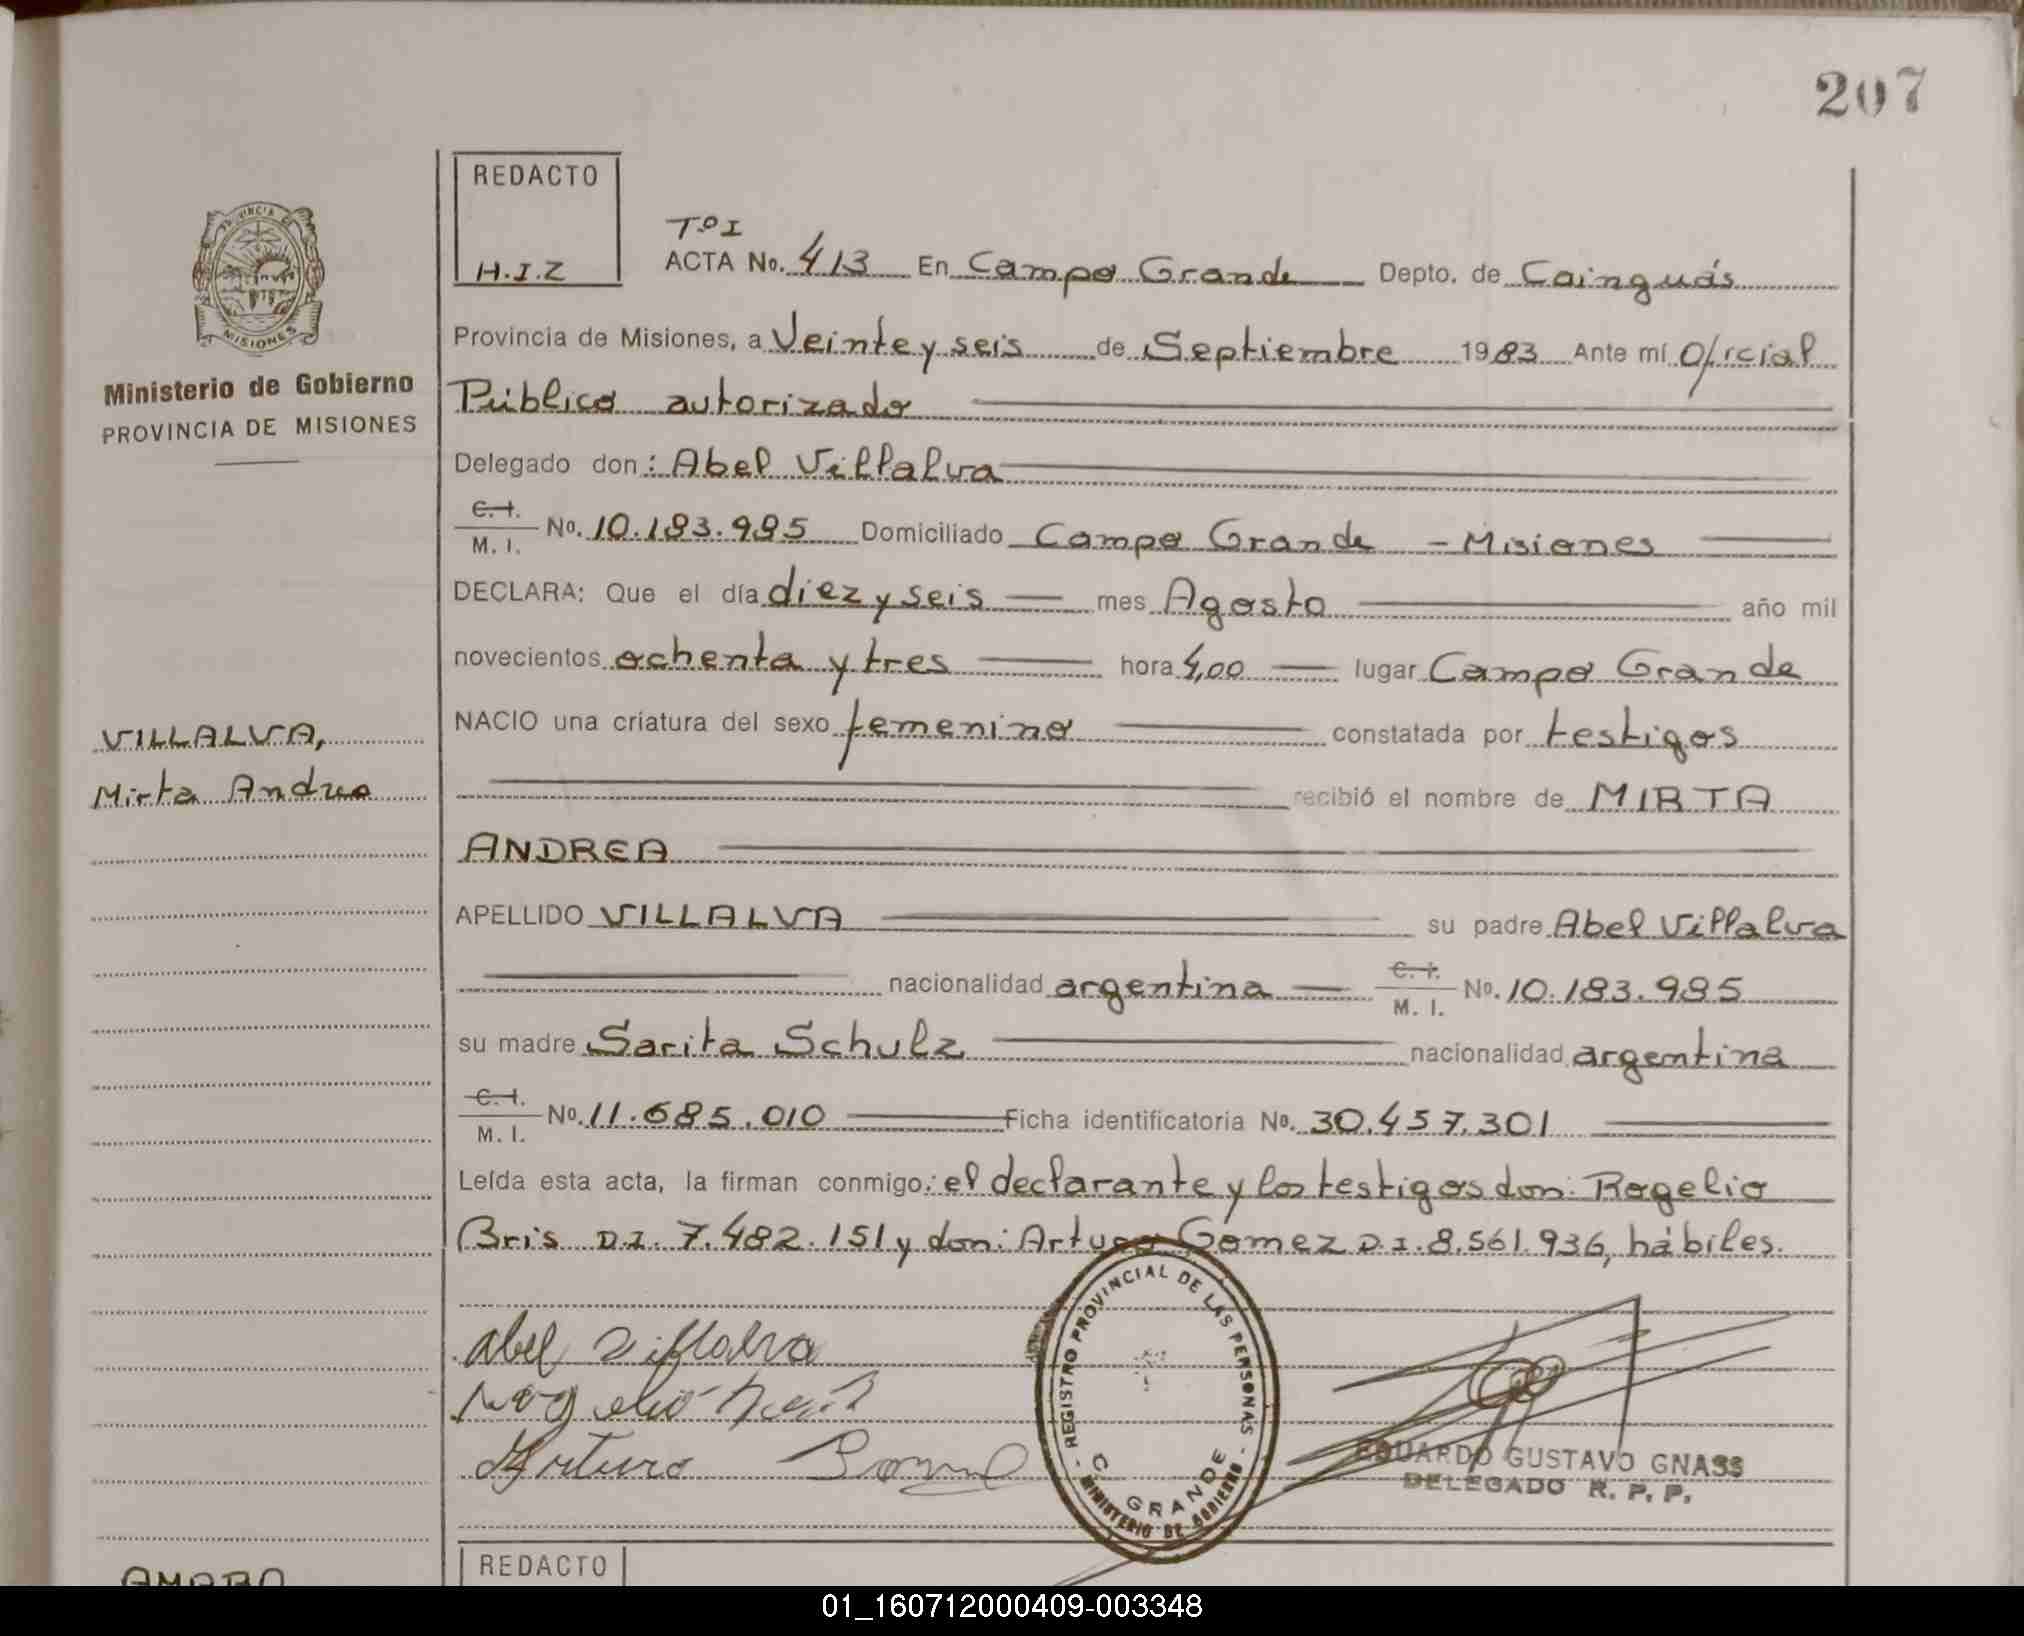 207
REDACTO
H.I.Z
PROVINCIA DE
MISIONES
Ministerio de Gobierno
PROVINCIA DE MISIONES
Tº I
ACTA No. 413 En Campo Grande Depto. de Cainguás
Provincia de Misiones, a Veinte y seis de Septiembre 1983 Ante mí Oficial
Público autorizado
Delegado don: Abel Villalva
C. I.
M. I. No. 10.183.985 Domiciliado Campo Grande - Misiones
DECLARA: Que el día diez y seis mes Agosto año mil
novecientos ochenta y tres hora 4,00 lugar Campo Grande
NACIO una criatura del sexo femenino constatada por testigos
VILLALVA,
Mirta Andrea
recibió el nombre de MIRTA
ANDREA
APELLIDO VILLALVA su padre Abel Villalva
nacionalidad argentina C. I.
M. I. No. 10.183.985
su madre Sarita Schulz nacionalidad argentina
C. I.
M. I. No. 11.685.010 Ficha identificatoria No. 30.457.301
Leída esta acta, la firman conmigo: el declarante y los testigos don: Rogelio
Bris D.I. 7.482.151 y don: Arturo Gomez D.I. 8.561.936, hábiles.
Abel Villalva
Arturo
REGISTRO PROVINCIAL DE LAS PERSONAS
C. GRANDE
MINISTERIO DE GOBIERNO
EDUARDO GUSTAVO GNASS
DELEGADO R. P. P.
REDACTO
AMARO
01_160712000409-003348